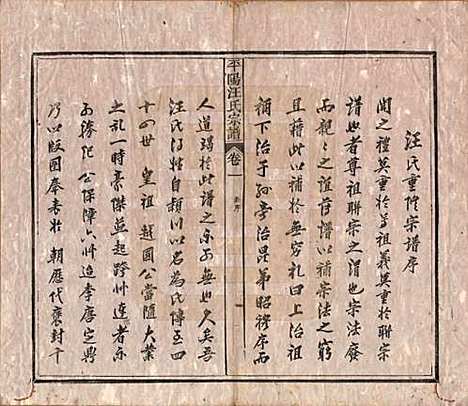 汪氏重修宗譜序
聞之禮莫重於尊祖義莫重於聯宗
譜也者尊祖聯宗之謂也宗法廢
而親之誼薄譜以補宗法之窮
且藉以補於無窮禮曰上治祖
禰下治子孫旁治昆弟昭穆序而
平陽汪氏宗譜 卷一 序
人道竭於此譜之不可無也久矣吾
汪氏得姓自潁川以名為氏傳至四
十四世 皇祖 越國公當隋大業
之亂一時豪傑並起跨州連者不
可勝紀 公保障六州迨李唐定興
乃以版圖奉表於 朝歷代褒封千